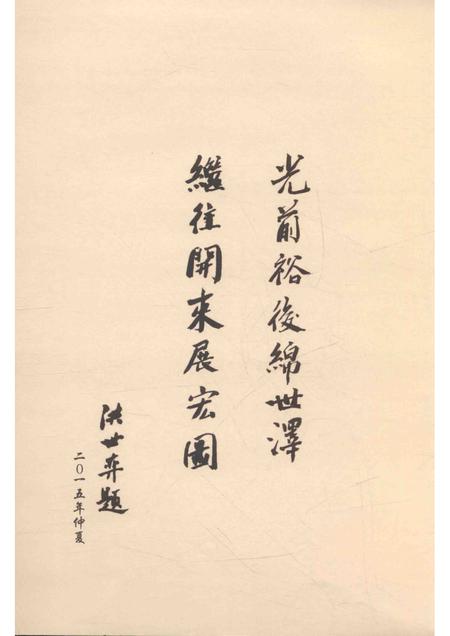 光前裕後綿世澤
繼往開來展宏圖
洪世弈題
二〇一五年仲夏